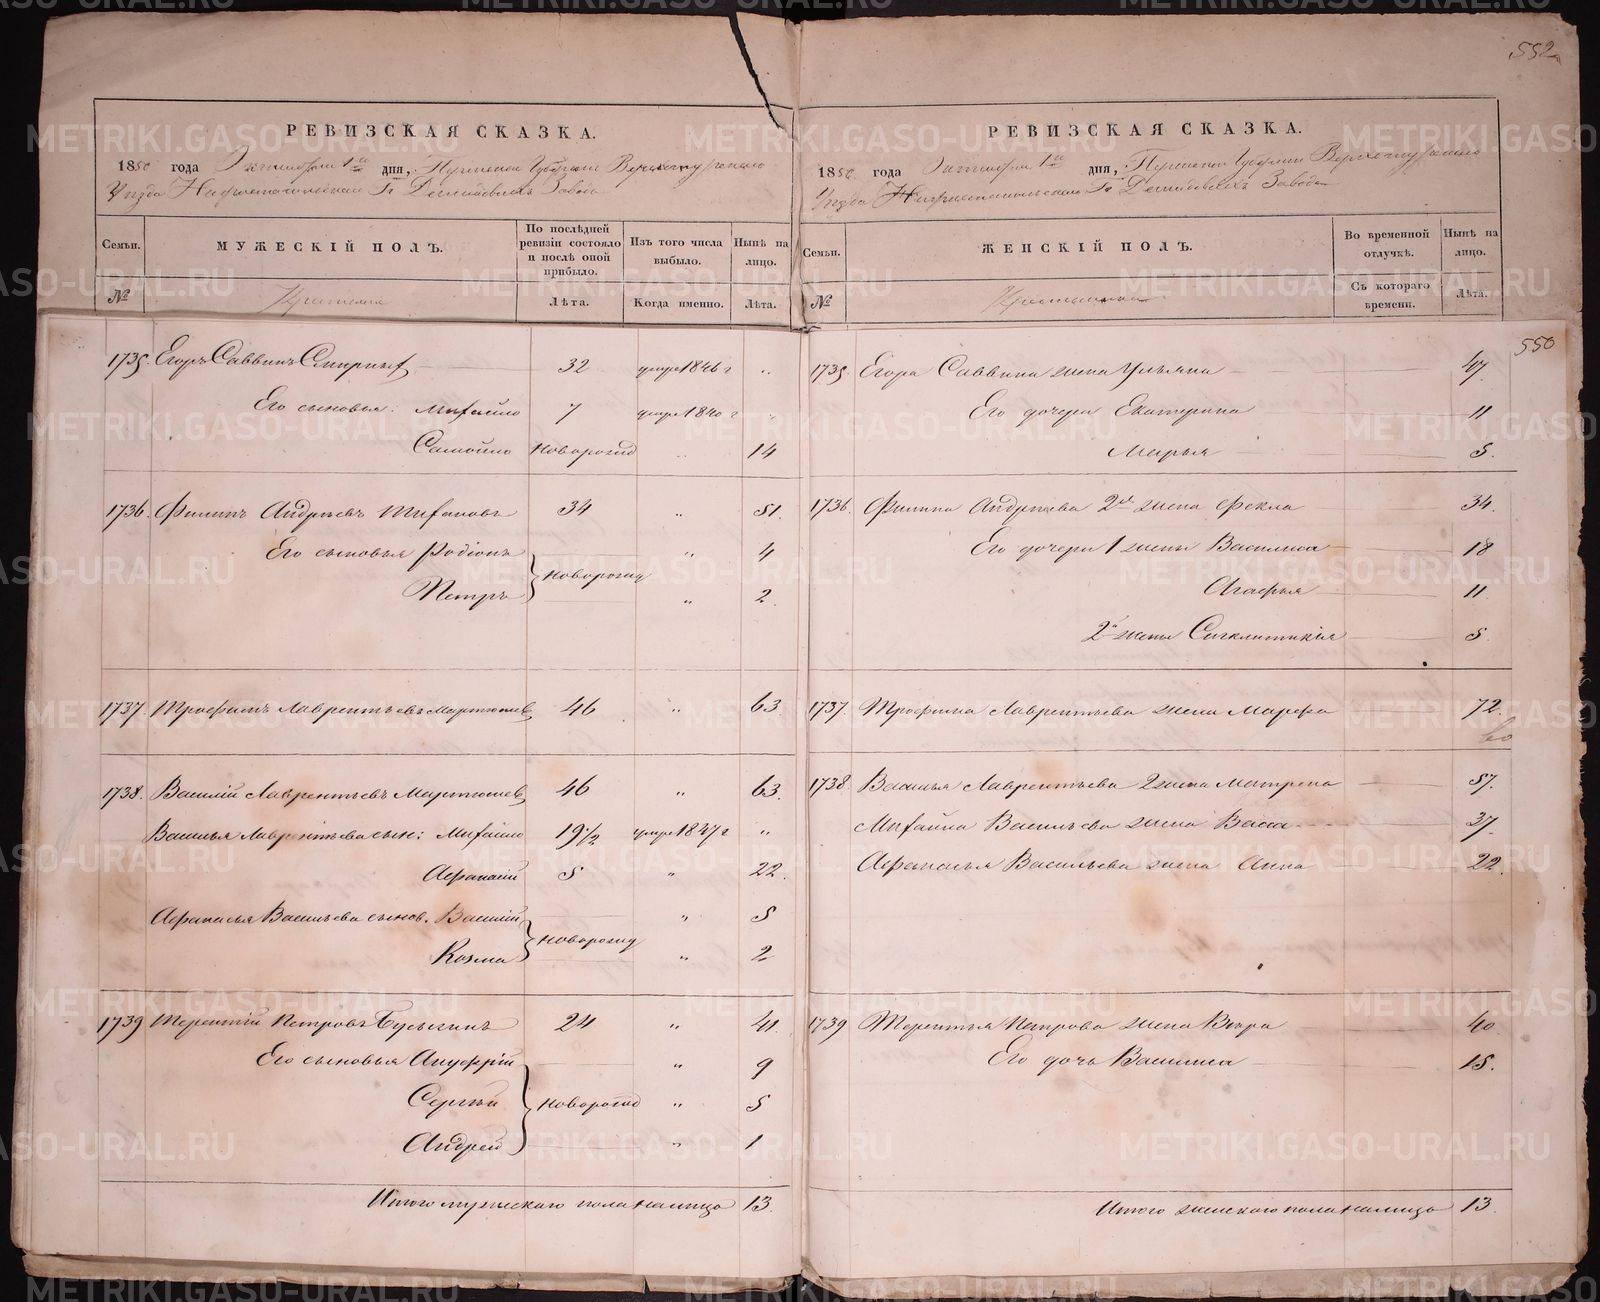 552
РЕВИЗСКАЯ СКАЗКА.
1850 года Октября 1го дня, Пермской Губернии Верхотурскаго
Уезда Нижнетагильскаго Гг Демидовыхъ Завода
Семьи.
МУЖЕСКІЙ ПОЛЪ.
По послѣдней ревизіи состояло и послѣ оной прибыло.
Изъ того числа выбыло.
Нынѣ на лицо.
№
Крестьяне
Лѣта.
Когда именно.
Лѣта.
1735. Егоръ Саввинъ 32 умре 1846 г "
Его сыновья: Михайло 7 умре 1840 г "
Самойло Новорожд " 14
1736. Филипъ Андреевъ Тихановъ 34 " 51.
Его сыновья Родіонъ " 4
Новорожд
Петръ " 2
1737. Трофимъ Лаврентьевъ Мартюшев 46 " 63
1738. Василій Лаврентьевъ Мартюшев 46 " 63.
Василья Лаврентьева сын: Михайло 19 1/2 умре 1847 г "
Афанасій 5 " 22.
Афанасья Васильева сынов. Василій " 5
Новорожд
Козма " 2
1739 Терентій Петровъ Бусыгинъ 24 " 41.
Его сыновья Ануфрій " 9
Сергѣй Новорожд " 5
Андрей " 1
Итого мужескаго пола налицо 13.
РЕВИЗСКАЯ СКАЗКА.
1850 года Октября 1го дня, Пермской Губернии Верхотурскаго
Уезда Нижнетагильскаго Гг Демидовыхъ Завода
Семьи.
ЖЕНСКІЙ ПОЛЪ.
Во временной отлучкѣ.
Нынѣ на лицо.
№
Крестьянки
Съ котораго времени.
Лѣта.
550
1735. Егора Саввина жена Ульяна 47
Его дочери Екатерина 11
Марья 5.
1736. Филипа Андреева 2я жена Фекла 34.
Его дочери 1 жены Василиса 18
Агафья 11.
2й жены Сигклитикія 5.
1737. Трофима Лаврентьева жена Марфа 72.
60
1738. Василья Лаврентьева 2 жена Матрена 57.
Михайла Васильева жена Васса 37.
Афанасья Васильева жена Анна 22.
1739 Терентья Петрова жена Вѣра 40.
Его дочь Василиса 15.
Итого женскаго пола налицо 13
METRIKI.GASO-URAL.RU